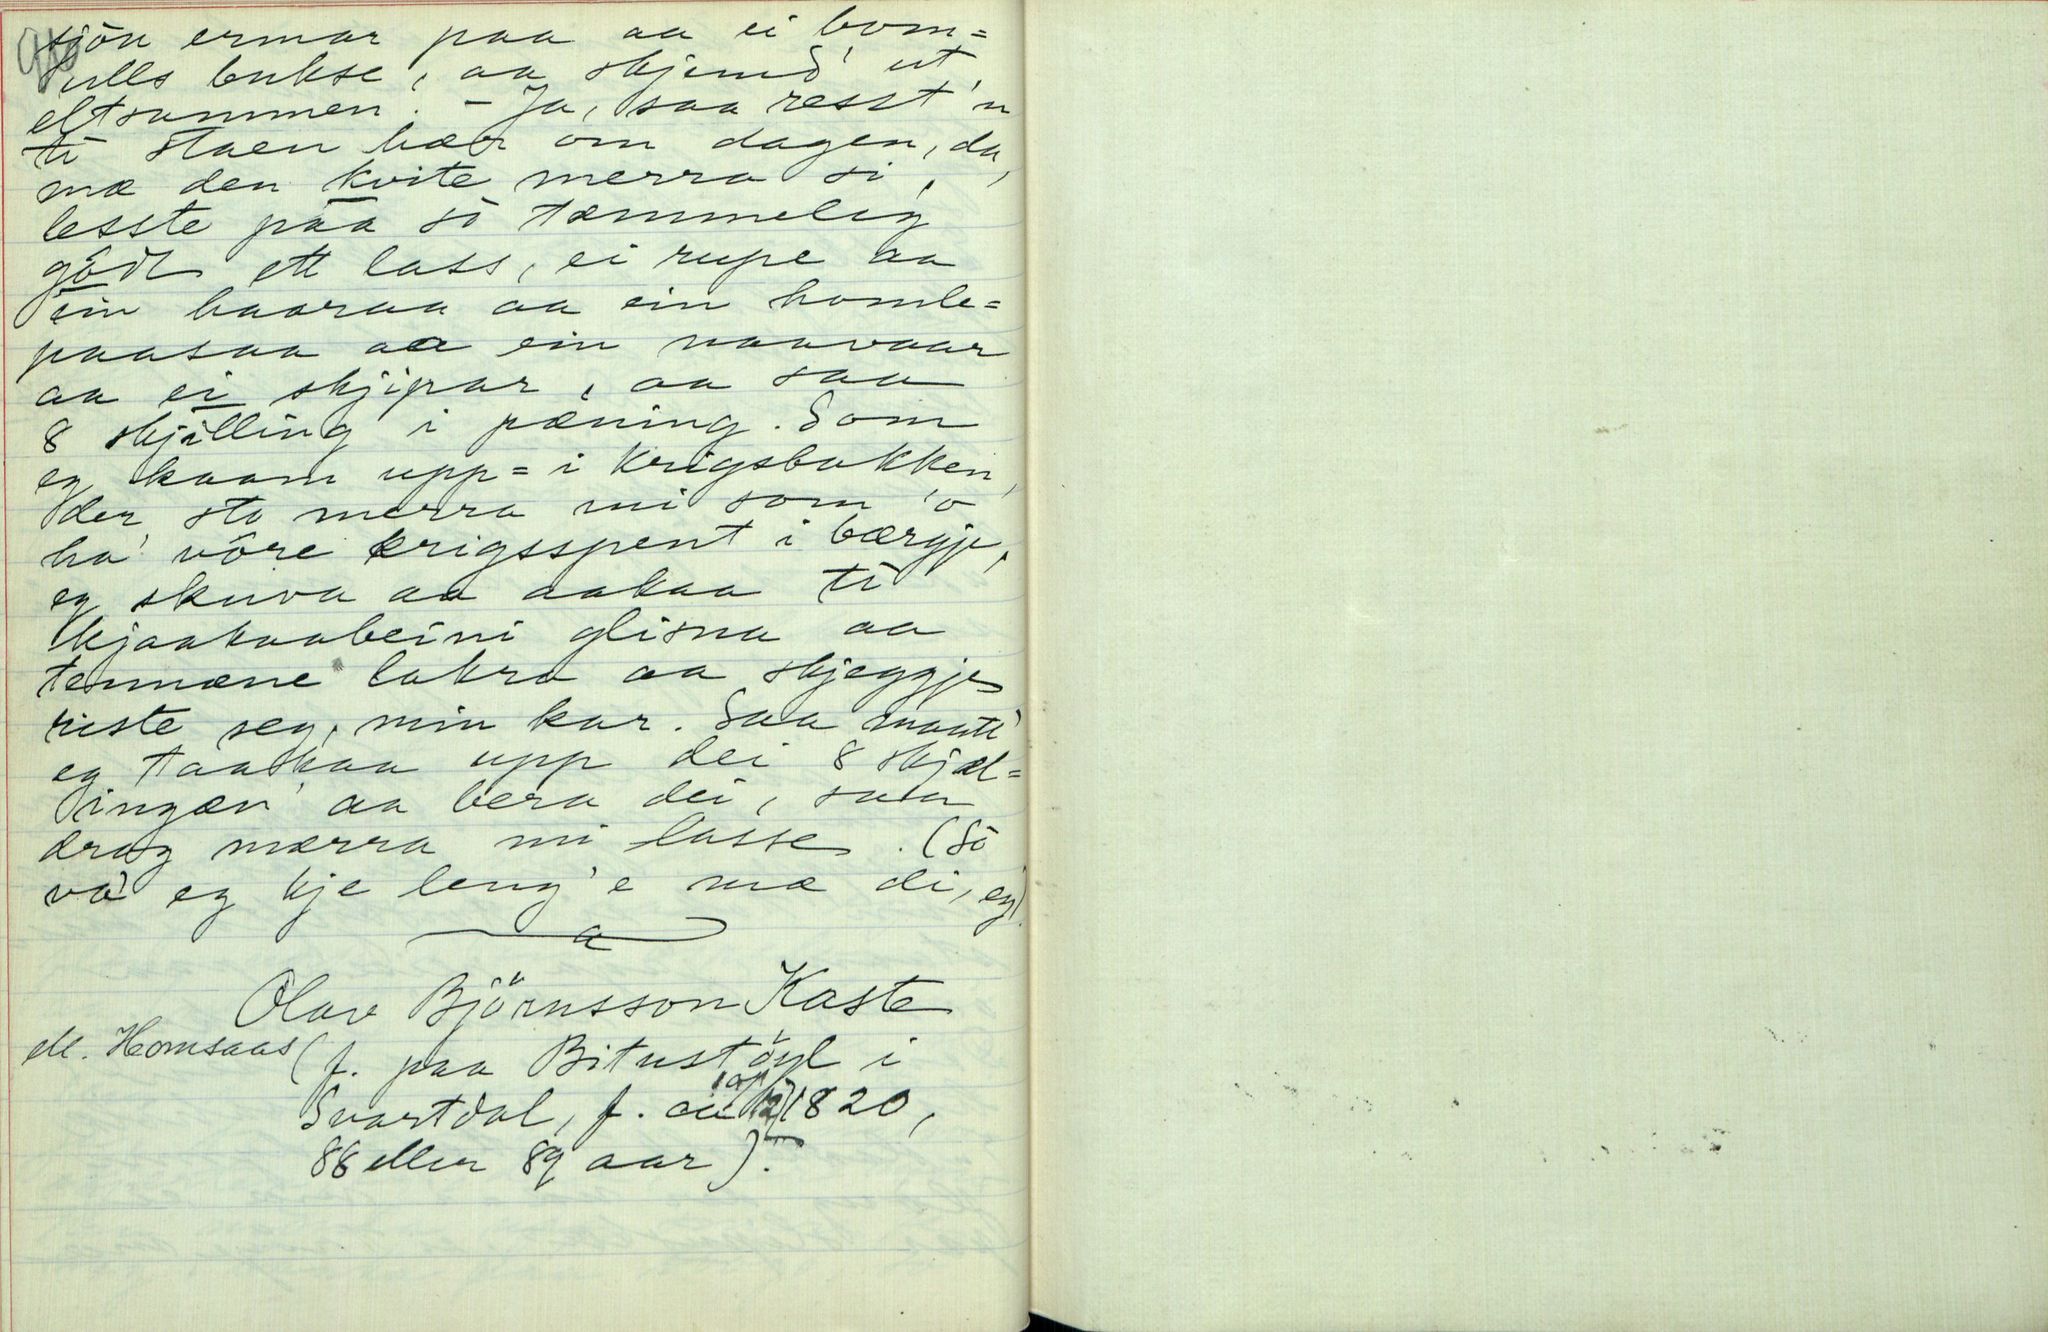 sjön ermar paa aa ei bom=
ulls bukse, aa skjemd' ut
eltsammen. - Ja, saa resst'n
ti staen hær om dagen, da,
mæ den kvite merra si,
lesste paa so tæmmeleg
godt ett lass, ei rupe aa
ein haaraa aa ein homle=
paasaa aa ein naavaar
aa ei skjipar, aa saa
8 skjilling i pæning. Som
eg kaam upp=i Krigsbakken,
der sto merra mi som 'o
ha' vöre krigsspent i bærgje,
eg skuva aa aakaa ti
kjaakaabeini glisna aa
tennæne lakra aa skjeggje
riste seg, min kar. Saa maatt'
eg taaskaa upp dei 8 skjæl=
ingæn' aa bera dei, saa
drog mærra mi lasse. (So
va' eg kje leng'e mæ di, eg)
Olav Björnsson Kaste
(f. paa Bitustöyl i
Svartdal, f. 1820,
88 eller 89 aar).